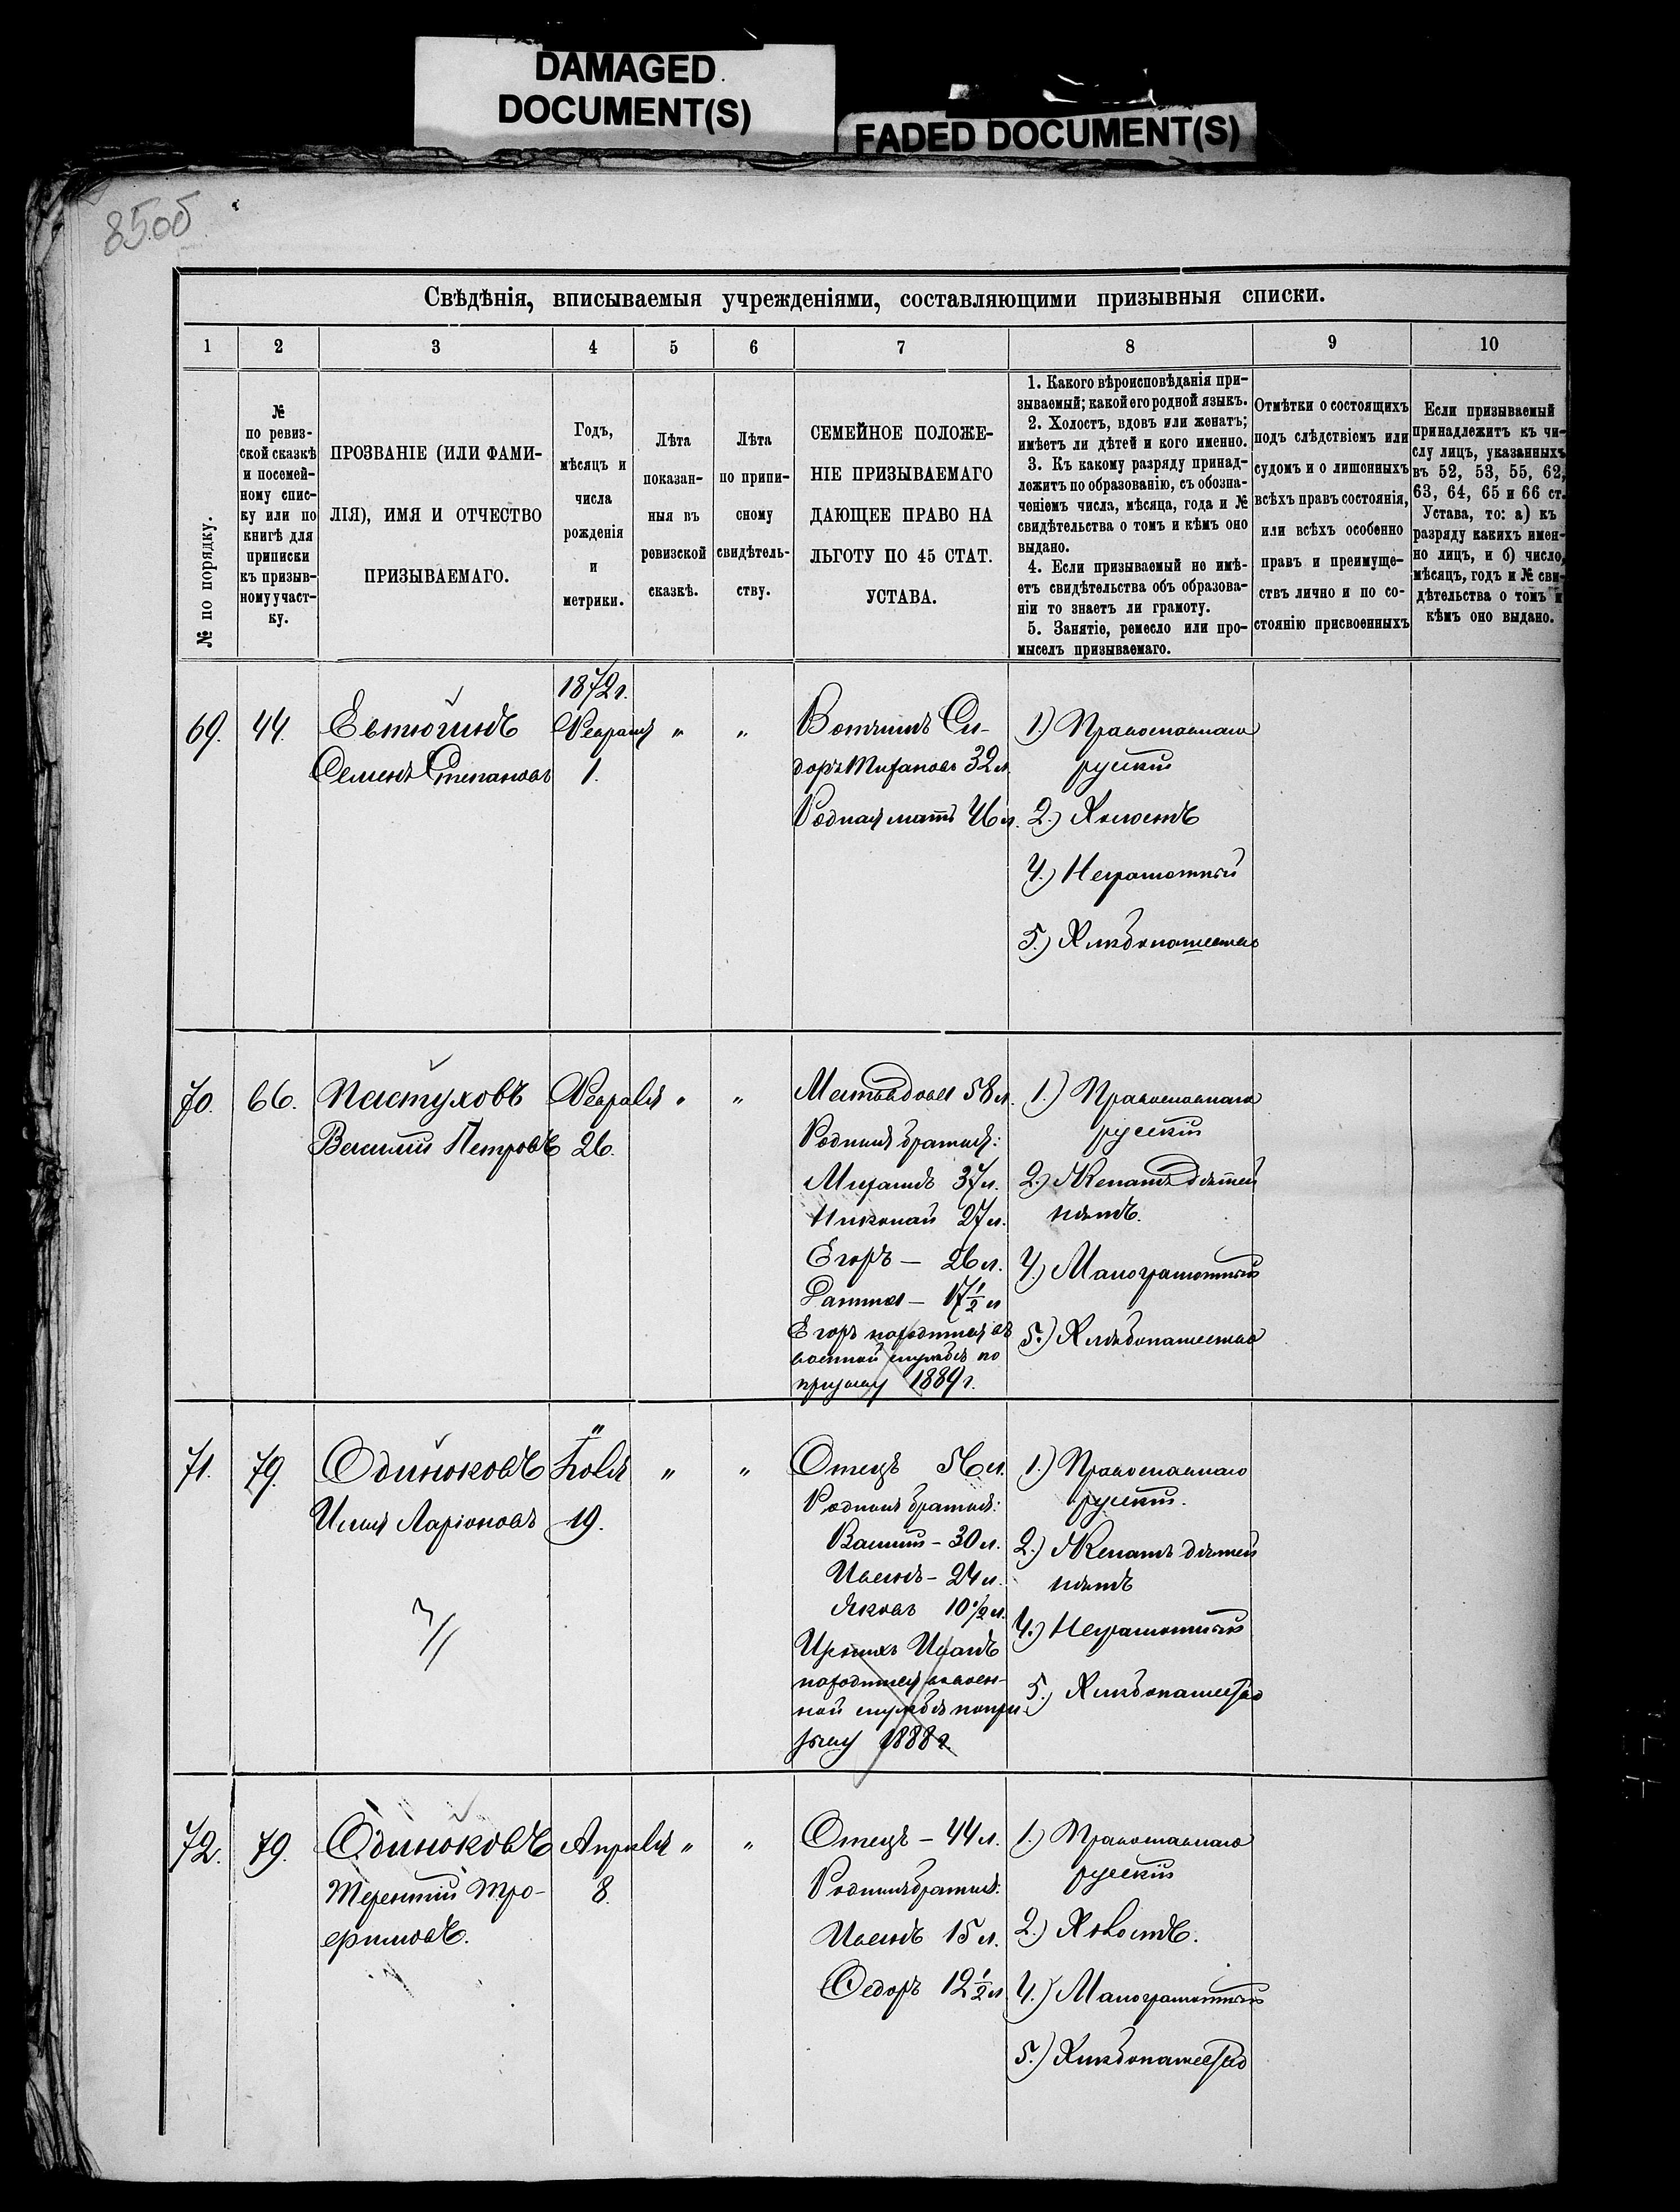 DAMAGED
DOCUMENT(S)
FADED DOCUMENT(S)
85об
Свѣдѣнія, вписываемыя учрежденіями, составляющими призывныя списки.
1 2 3 4 5 6 7 8 9 10
№ по порядку.
№
по ревиз-
ской сказкѣ
и посемей-
ному спис-
ку или по
книгѣ для
приписки
къ призыв-
ному участ-
ку.
ПРОЗВАНІЕ (ИЛИ ФАМИ-
ЛІЯ), ИМЯ И ОТЧЕСТВО
ПРИЗЫВАЕМАГО.
Годъ,
мѣсяцъ и
числа
рожденія
и
метрики.
Лѣта
показан-
ныя въ
ревизской
сказкѣ.
Лѣта
по припи-
сному
свидѣтель-
ству.
СЕМЕЙНОЕ ПОЛОЖЕ-
НІЕ ПРИЗЫВАЕМАГО
ДАЮЩЕЕ ПРАВО НА
ЛЬГОТУ ПО 45 СТАТ.
УСТАВА.
1. Какого вѣроисповѣданія при-
зываемый; какой его родной языкъ.
2. Холостъ, вдовъ или женатъ;
имѣетъ ли дѣтей и кого именно.
3. Къ какому разряду принад-
лежитъ по образованію, съ обозна-
ченіемъ числа, мѣсяца, года и №
свидѣтельства о томъ и кѣмъ оно
выдано.
4. Если призываемый не имѣ-
етъ свидѣтельства объ образова-
ніи то знаетъ ли грамоту.
5. Занятіе, ремесло или про-
мыселъ призываемаго.
Отмѣтки о состоящихъ
подъ слѣдствіемъ или
судомъ и о лишенныхъ
всѣхъ правъ состоянія,
или всѣхъ особенно
правъ и преимуще-
ствъ лично и по со-
стоянію присвоенныхъ
Если призываемый
принадлежитъ къ чи-
слу лицъ, указанныхъ
въ 52, 53, 55, 62,
63, 64, 65 и 66 ст.
Устава, то: а) къ
разряду какихъ имен-
но лицъ, и б) число,
мѣсяцъ, годъ и № сви-
дѣтельства о томъ и
кѣмъ оно выдано.
69. 44.
Евтюгинъ
Семенъ Степановъ
1872 г.
Февраля
1.
" "
Вотчимъ Си-
доръ 32 л.
Родная мать 46 л.
1.) Православнаго
русскій
2.) Холостъ
4.) Неграмотный
5.) Хлѣбопашество
70. 66.
Пастуховъ
Василій Петровъ
Февраля
26.
" "
Мать вдова 58 л.
Родныя братья:
Михаилъ 37 л.
Николай 27 л.
Егоръ — 26 л.
17 1/2 л
Егоръ находится въ
военной службѣ по
призыву 1889 г.
1.) Православнаго
русскій
2.) Женатъ дѣтей
нѣтъ.
4.) Малограмотный
5.) Хлѣбопашество
71. 79.
Одиноковъ
Илья Ларіоновъ
Іюля
19.
" "
Отецъ 56 л.
Родныя братья:
Василій — 30 л.
Иванъ — 24 л.
Яковъ 10 1/2 л.
Изъ нихъ Иванъ
находится въ воен-
ной службѣ по при-
зыву 1888 г.
1.) Православнаго
русскій.
2.) Женатъ дѣтей
нѣтъ
4.) Неграмотный
5.) Хлѣбопашество
72. 79.
Одиноковъ
Терентій Тро-
фимовъ.
Апрѣля
8.
" "
Отецъ — 44 л.
Родныя братья:
Иванъ 15 л.
Федоръ 12 1/2 л
1.) Православнаго
русскій
2.) Холостъ.
4.) Малограмотный
5.) Хлѣбопашество